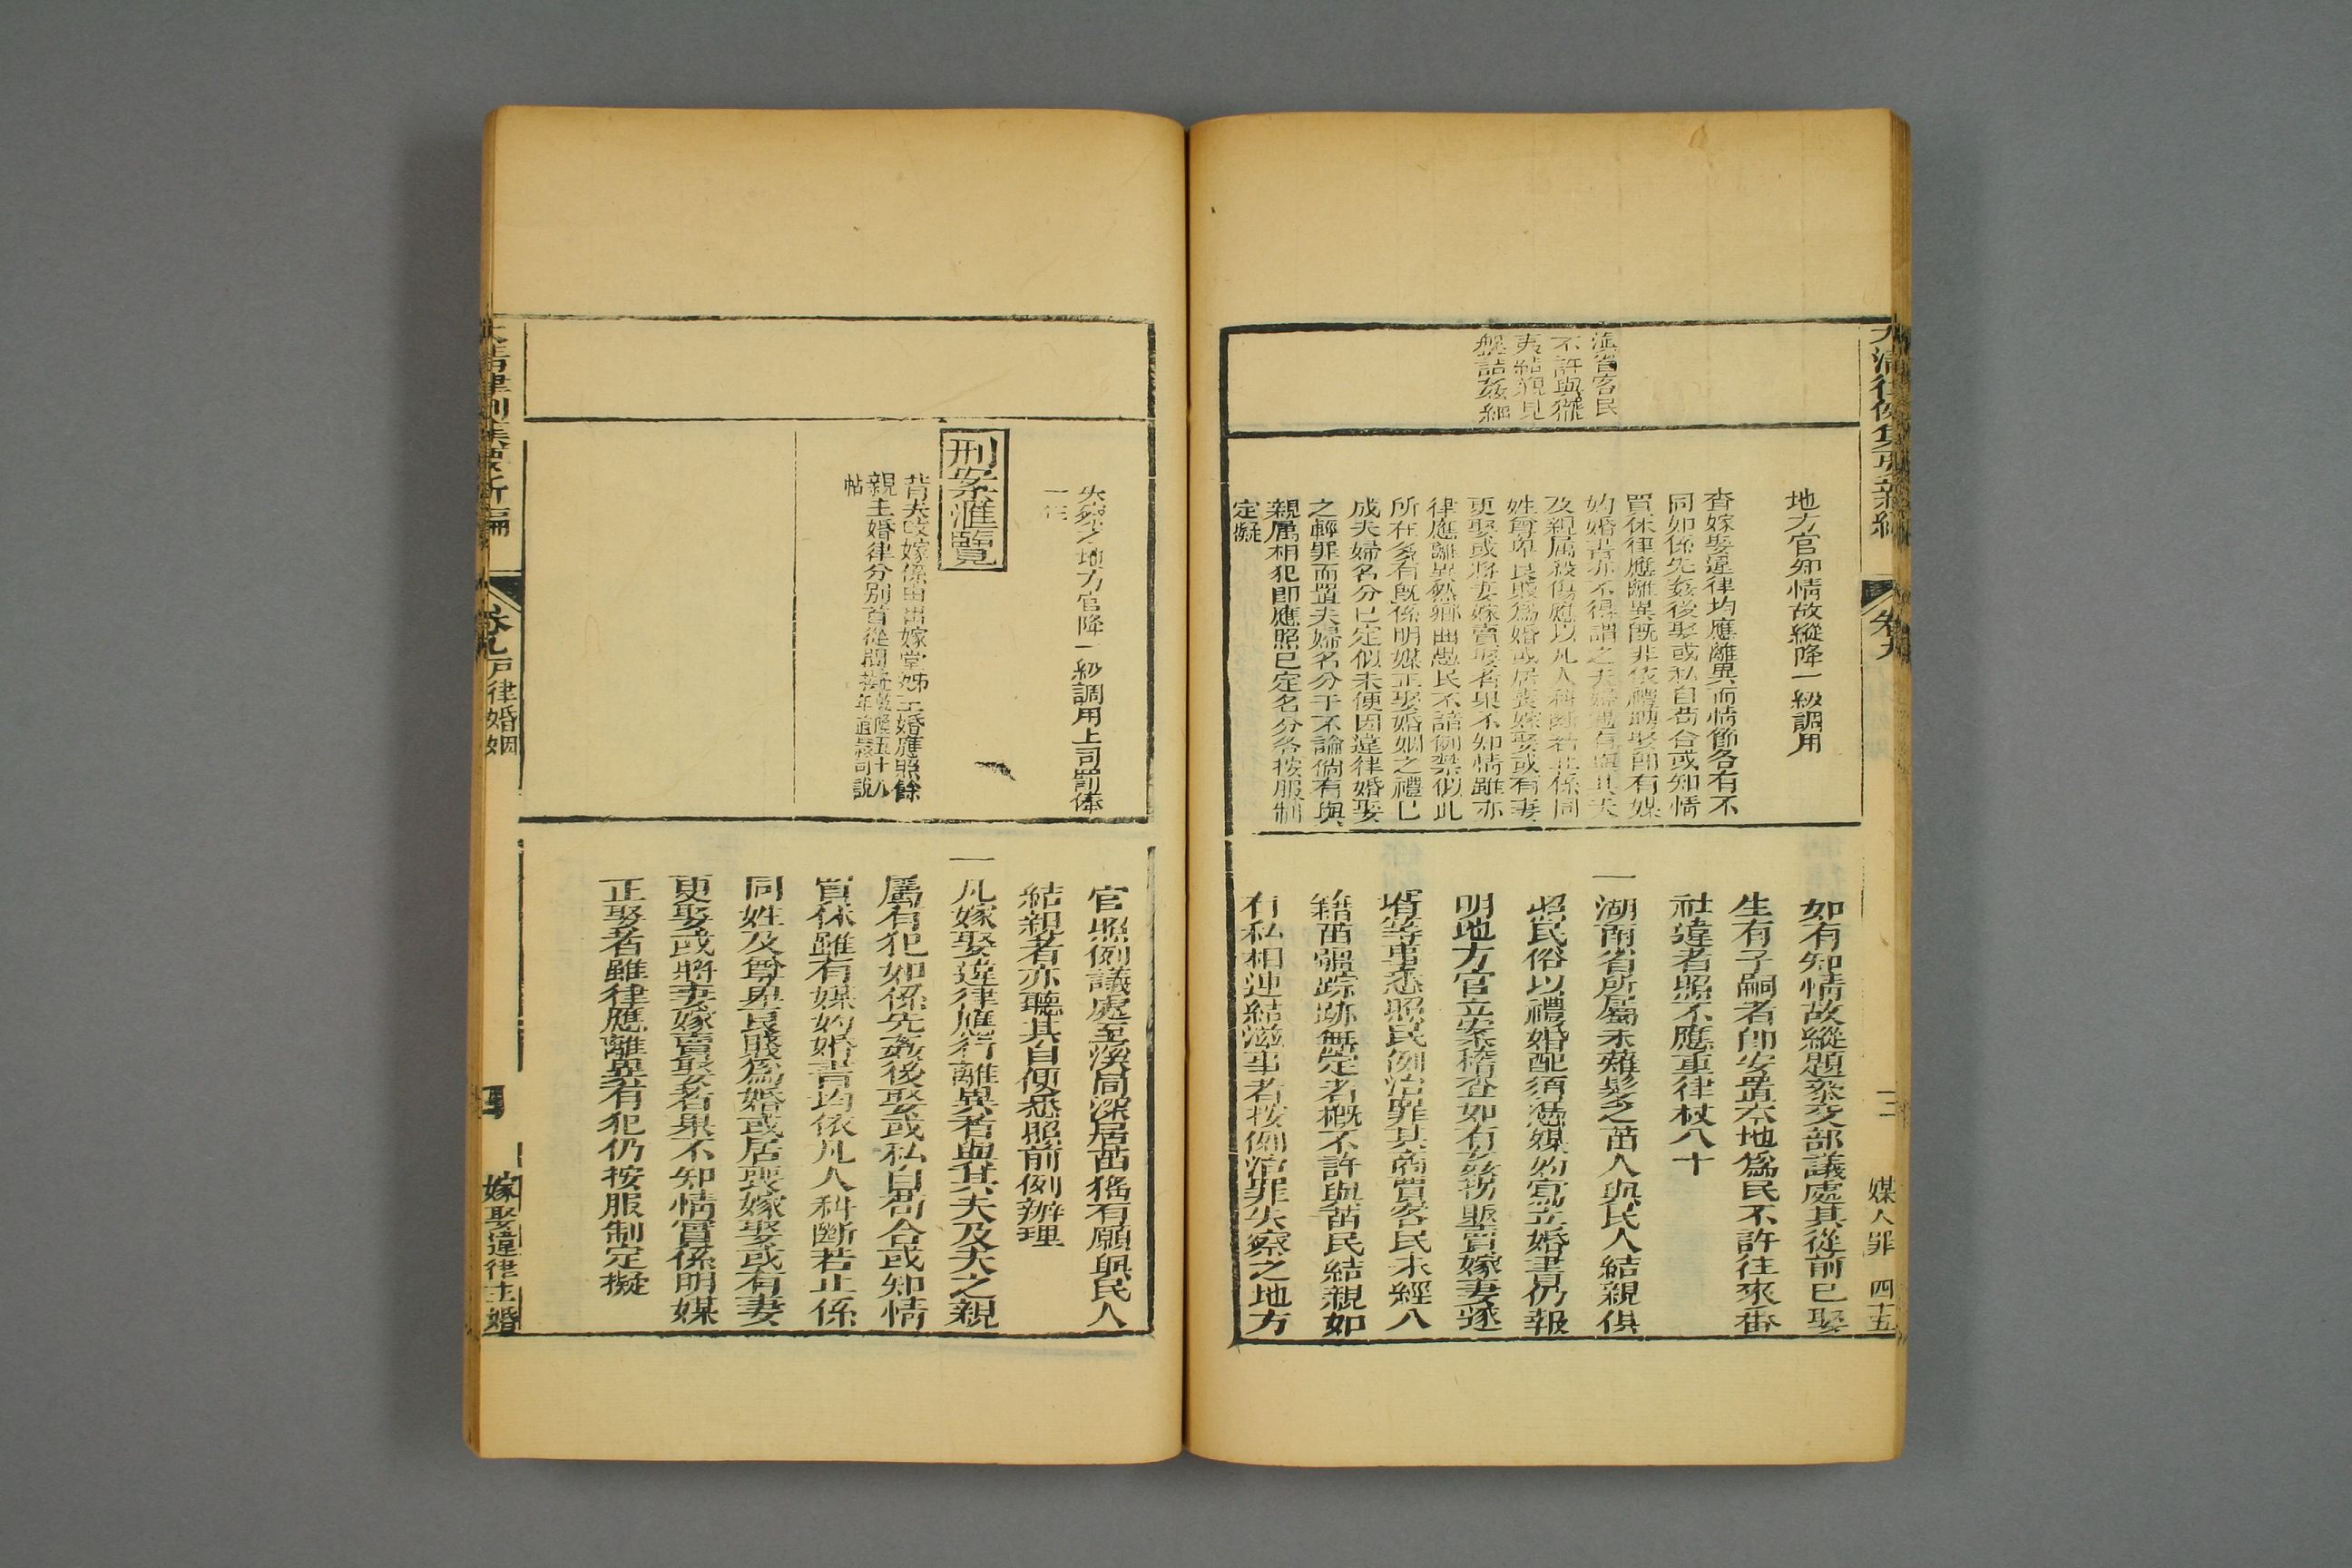 大清律例集要新編
卷九
媒人罪
四十五
滇省客民
不許與㹮
夷結親見
盤詰奸細
地方官知情故縱降一級調用
查嫁娶違律均應離異而情節各有不
同如係先姦後娶或私自苟合或知情
買休律應離異既非依禮聘娶卽有媒
妁婚書亦不得謂之夫婦遇有與其夫
及親屬殺傷應以凡人科斷若止係同
姓尊卑良賤為婚或居喪嫁娶或有妻
更娶或將妻嫁賣娶者果不知情雖亦
律應離異然鄉曲愚民不諳例禁似此
所在多有旣係明媒正娶婚姻之禮已
成夫婦名分已定似未便因違律婚娶
之輕罪而置夫婦名分于不論倘有與
親屬相犯卽應照已定名分各按服制
定擬
如有知情故縱題參交部議處其從前已娶
生有子嗣者卽安置本地為民不許往來番
社違者照不應重律杖八十
一湖南省所屬未薙髮之苗人與民人結親俱
照民俗以禮婚配須憑媒妁寫立婚書仍報
明地方官立案稽查如有姦拐販賣嫁妻逐
壻等事悉照民例治罪其商賈客民未經入
籍苗疆踪跡無定者概不許與苗民結親如
有私相連結滋事者按例治罪失察之地方
失察之地方官降一級調用上司罰俸
一年
刑案滙覽
背夫改嫁係由出嫁堂姊主婚應照餘
親主婚律分別首從問擬
乾隆五十八
年直隸司說
帖
官照例議處至溪峒深居苗猺有願與民人
結親者亦聽其自便悉照前例辦理
一凡嫁娶違律應行離異者與其夫及夫之親
屬有犯如係先姦後娶或私自苟合或知情
買休雖有媒妁婚書均依凡人科斷若止係
同姓及尊卑良賤為婚或居喪嫁娶或有妻
更娶或將妻嫁賣娶者果不知情實係明媒
正娶者雖律應離異有犯仍按服制定擬
大清律例集要新編
卷九
戶律婚姻
嫁娶違律主婚